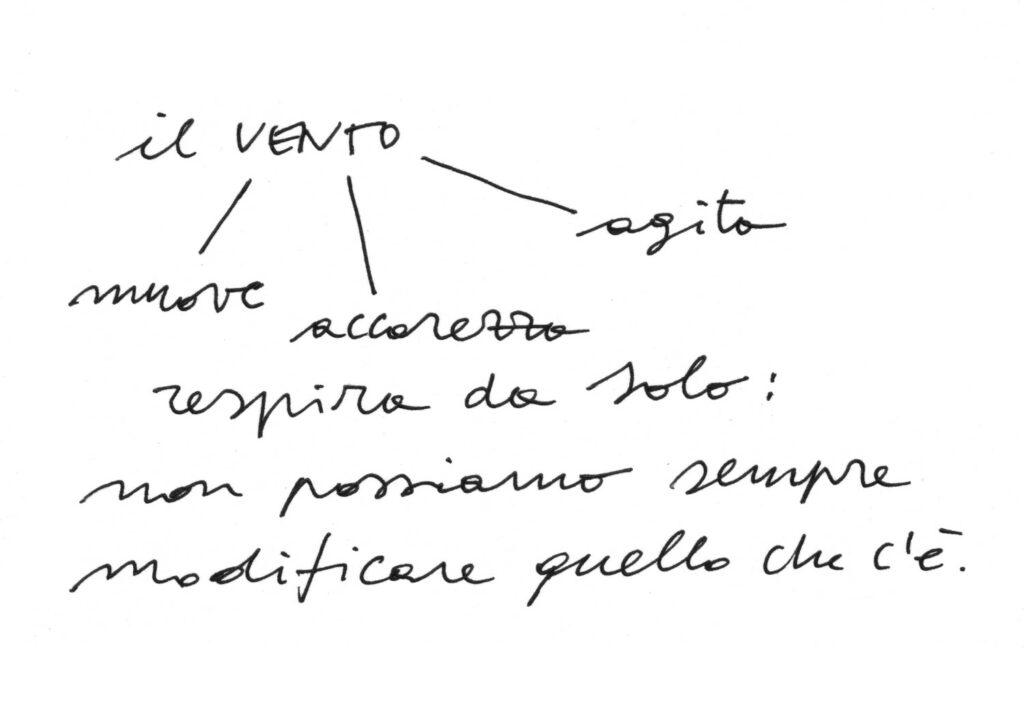 il VENTO
agita
muove
accarezza
respira da solo:
non possiamo sempre
modificare quello che c'è.